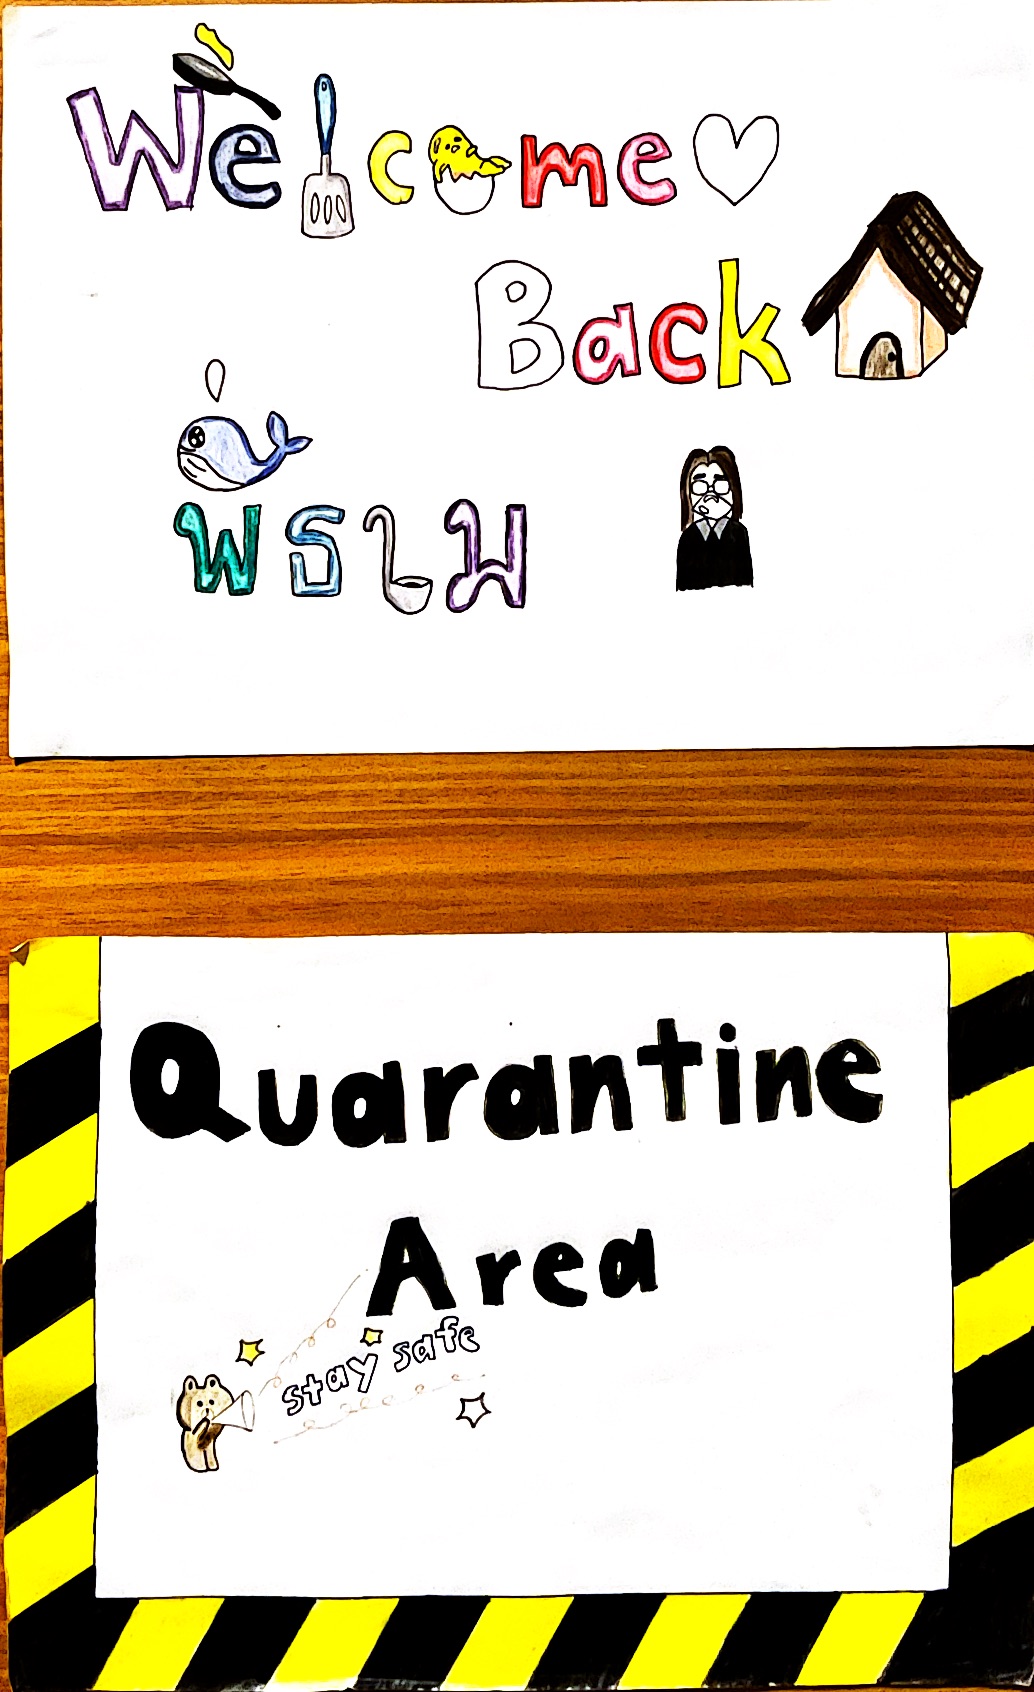 Welcome♡
Back
พี่ธาม
Quarantine
Area
stay safe